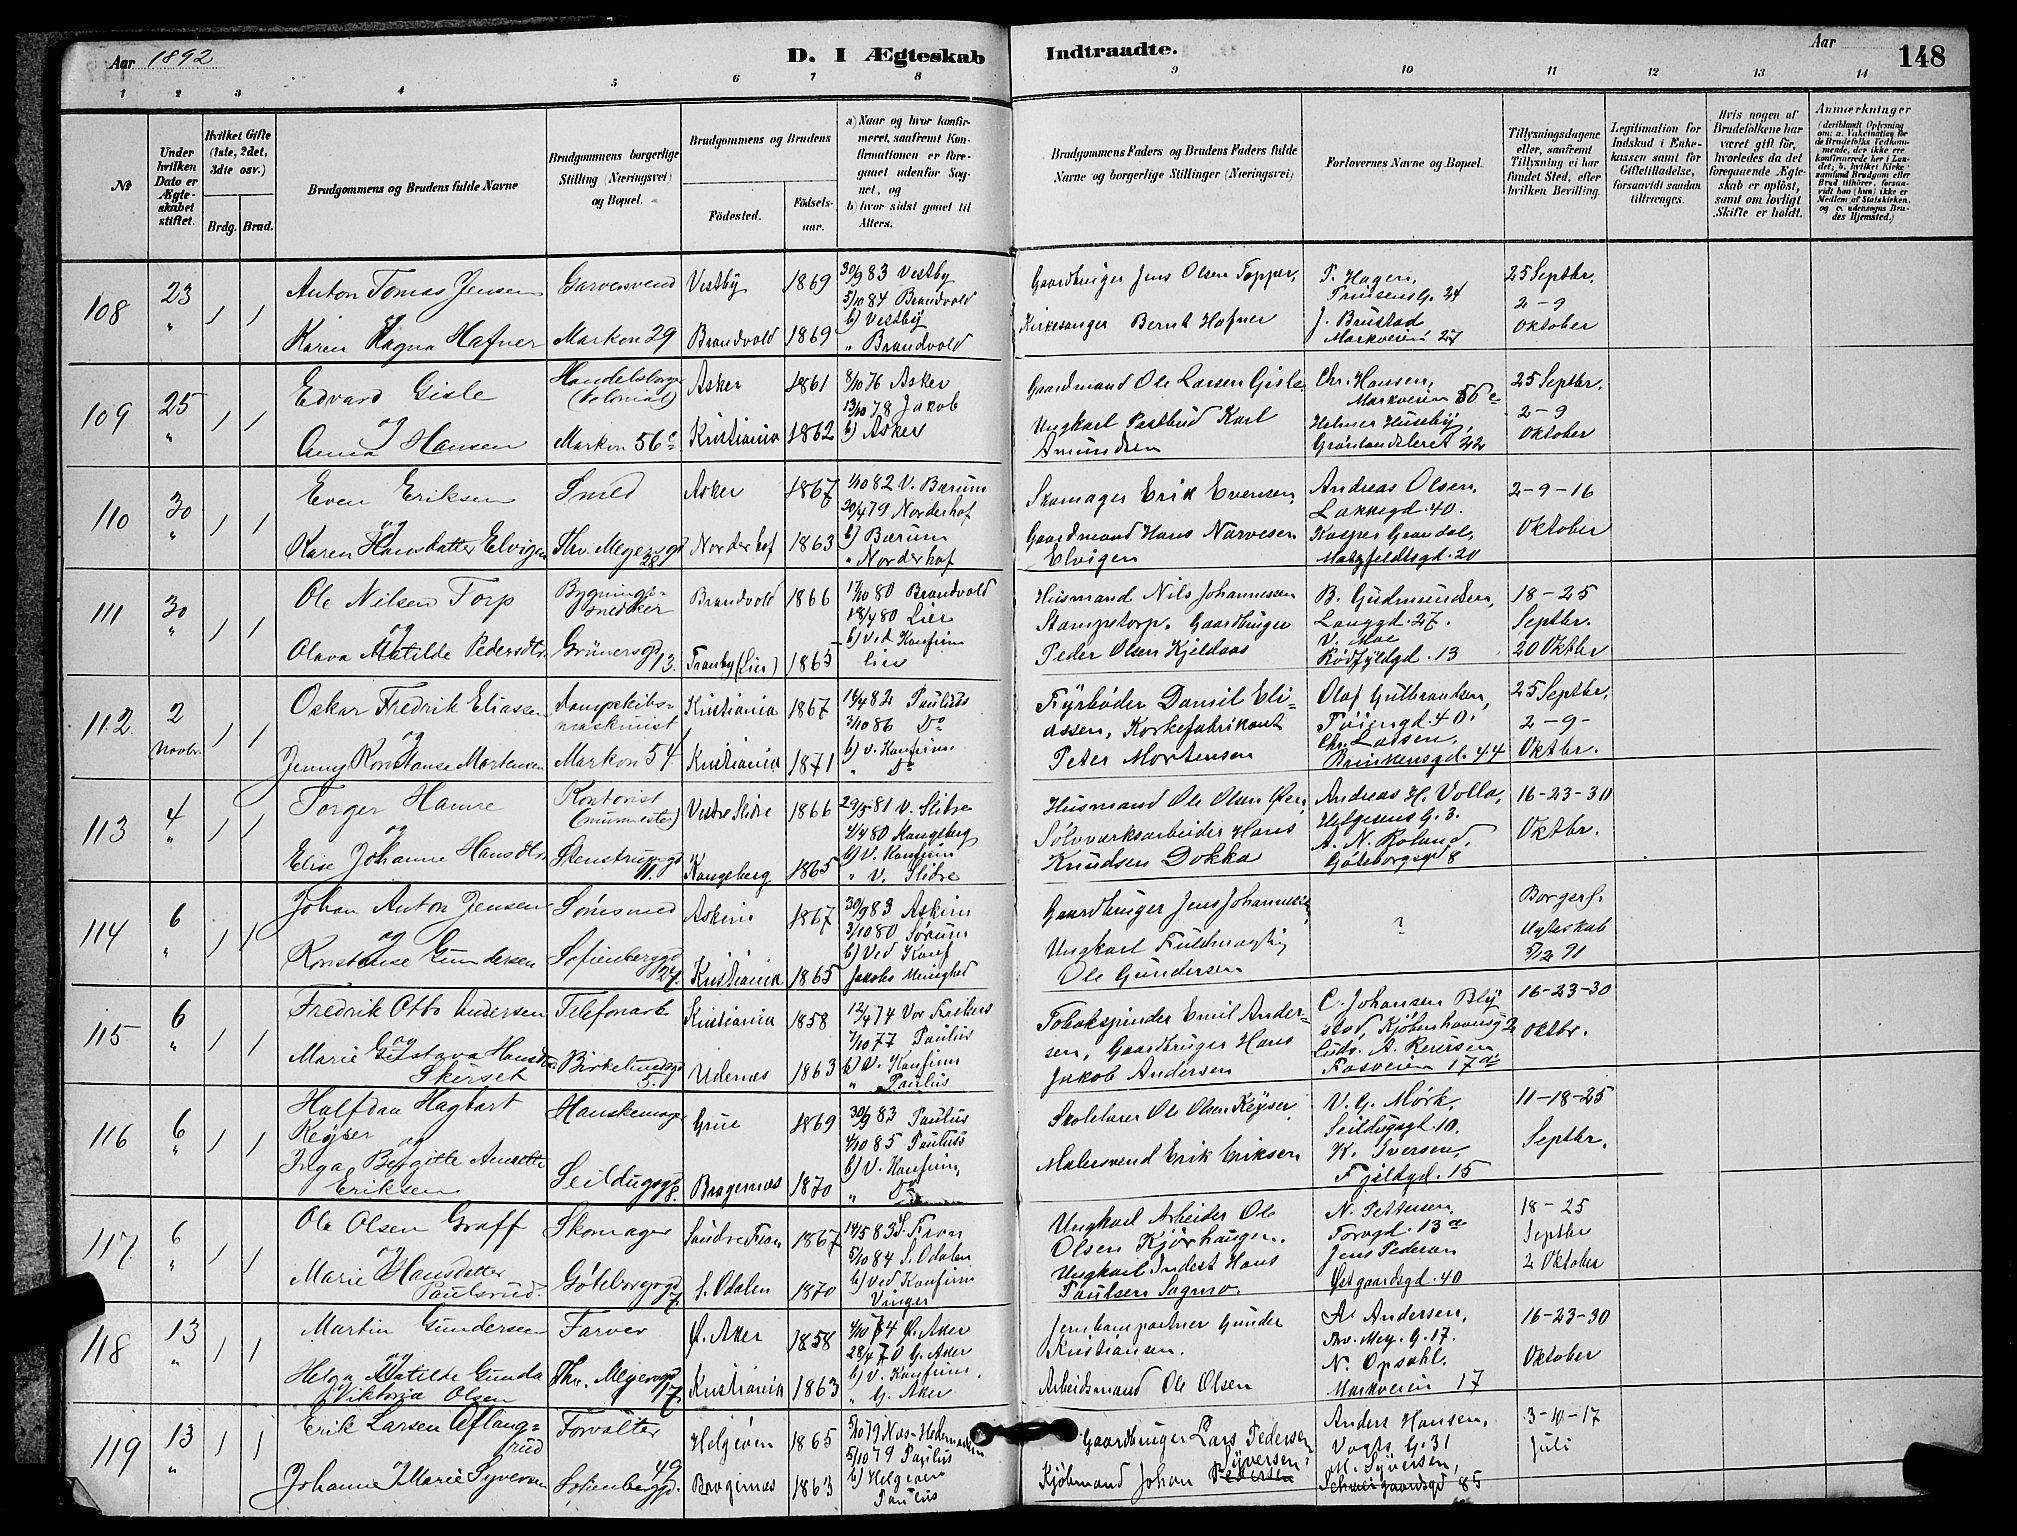 Aar 1892
D. I Ægteskab Indtraadte.
Aar
148
1 2 3 4 5 6 7 8 9 10 11 12 13 14
No
Under hvilken Dato er Ægteskabet stiftet.
Hvilket Gifte (1ste, 2det, 3die osv.)
Brdg. Brud.
Brudgommens og Brudens fulde Navne
Brudgommens borgerlige Stilling (Næringsvei) og Bopæl.
Brudgommens og Brudens
Fødested. Fødselsaar.
a) Naar og hvor konfirmeret, saafremt Konfirmationen er foregaaet udenfor Sognet, og
b) hvor sidst gaaet til Alters.
Brudgommens Faders og Brudens Faders fulde Navne og borgerlige Stillinger (Næringsvei)
Forlovernes Navne og Bopæl.
Tillysningsdagene eller, saafremt Tillysning ei har fundet Sted, efter hvilken Bevilling.
Legitimation for Indskud i Enkekassen samt for Giftetilladelse, forsaavidt saadan tiltrænges.
Hvis nogen af Brudefolkene har været gift før, hvorledes da det foregaaende Ægteskab er opløst, samt om lovligt Skifte er holdt.
Anmærkninger
108 23 " 1 1
Anton Tomas Jensen
og
Karen Magna Hafner
Garversvend
Markvn 29
Vestby 1869
Brandvold 1869
30/9 83 Vestby
5/10 84 Brandvold
b) Vestby
" Brandvold
Gaardbruger Jens Olsen Topper,
Kirkesanger Bernt Hafner
P. Hagen,
24
J. Brustad
Markveien 27
25 Septbr.
2-9
Oktober
109 25 " 1 1
Edvard Gisle
og
Anna Hansen
Handelsborger
(kolonial)
Markvn 56c
Asker 1861
Kristiania 1862
8/10 76 Asker
13/10 78 Jakob
b) Asker
Gaardmand Ole Larsen Gisle
Ungkarl Postbud Karl
Amundsen
Chr. Hansen,
Markveien 56c
Helmer Huseby,
Grønlandsleret 22
25 Septbr.
2-9
Oktober
110 30 " 1 1
Even Eriksen
og
Karen Hansdatter Elvigen
Smed
Thv. Meyersgd
28
Asker 1867
Norderhof 1863
1/10 82 V. Bærum
20/4 79 Norderhof
b) Bærum
" Norderhof
Skomager Erik Evensen,
Gaardmand Hans Narvesen
Elvigen
Andreas Olsen,
Lakkegd. 40.
Kasper Grandal,
Motzfeldtsgd. 20
2-9-16
Oktober
111 30 " 1 1
Ole Nilsen Torp
og
Olava Matilde Pedersdtr.
Bygningssnedker
Grünersgd 13.
Brandvold 1866
Tranby (Lier) 1865
17/10 80 Brandvold
18/4 80 Lier
b) Ved Konfirm
Lier
Husmand Nils Johannessen
Stampetorp. Gaardbruger
Peder Olsen Kjeldaas
B. Gudmundsen,
Langgd. 27.
V. Moe
Rødfyldgd. 13
18-25
Septbr.
20 Oktbr
112. 2 Novbr. 1 1
Oskar Fredrik Eliassen
og
Jenny Konstanse Mortensen
Dampskibsmaskinist
Markvn 54
Kristiania 1867
Kristiania 1871
16/4 82 Paulus
3/10 86 Do
b) v. Konfirm.
" Do
Fyrbøder Daniel Eliassen, Korkefabrikant
Peter Mortensen
Olaf Gulbrandsen,
Tøiengd. 40.
Chr. Larsen,
Brinkensgd. 44
25 Septbr.
2-9-
Oktbr.
113 4 " 1 1
Torger Hamre
og
Elise Johanne Hansdtr.
Kontorist
(murmester)
Stenstrupsgd
11.
Vestre Slidre 1866
Kongsberg 1865
29/5 81 V. Slidre
4/4 80 Kongsberg
b) V. Konfirm
" V. Slidre
Husmand Ole Olsen Øien,
Sølvværksarbeider Hans
Knudsen Dokka
Andreas H. Volla,
Helgesens G. 3.
A. N. Roland,
Göteborgsgd 8
16-23-30
Oktbr.
114 6 " 1 1
Johan Anton Jensen
og
Konstanse Gundersen
Sømsmed
Sofienberggd
Askim 1867
Kristiania 1865
30/9 83 Askim
3/10 80 Sørum
b) Ved Konf
Jakobs Menighed
Gaardbruger Jens Johannesen,
Ungkarl Fuldmægtig
Ole Gundersen
?
Borgerl.
Ægteskab
5/12 91
115 6 " 1 1
Fredrik Otto Andersen
og
Marie Gustava Hansdtr.
Skerset
Telefonarb
Birkelundsgd
5.
Kristiania 1858
Udenæs 1863
12/4 74 Vor Frelsers
7/10 77 Paulus
b) V. Konfirm
" Paulus
Tobakspinder Emil Andersen, Gaardbruger Hans
Jakob Andersen
C. Johansen Blystad, Kjøbenhavnsg 2
Fosveien 17a
16-23-30
Oktbr.
116 6 " 1 1
Halfdan Hagbart
Keyser
og
Inga Bergitte Annette
Eriksen
Hanskemager
Seildugsgd
8.
Grue 1869
Bragernæs 1870
30/9 83 Paulus
4/10 85 Paulus
b) V. Konfirm,
" Do
Skolelærer Ole Olsen Keyser,
Malersvend Erik Eriksen
V. G. Mørk,
Seildugsgd. 10.
K. Iversen,
Fjeldgd. 15
11-18-25
Septbr.
117. 6 " 1 1
Ole Olsen Graff
og
Marie Hansdatter
Paulsrud.
Skomager
Göteborgsgd
7.
Søndre Fron 1867
S. Odalen 1870
14/5 83 S. Fron
5/10 84 S. Odalen
b) Ved Konfirm
Vinger
Ungkarl Arbeider Ole
Olsen Kjørhaugen.
Ungkarl Inderst Hans
Paulsen Sagmo.
N. Pettersen,
Torvgd. 13a
Jens Pedersen
Østgaardsgd. 40
18-25
Septbr
2 Oktober
118 13 " 1 1
Martin Gundersen
og
Helga Matilde Gunda
Viktoria Olsen
Farver
Thv. Meyersgd
17.
Ø. Aker 1858
Kristiania 1863
4/10 74 Ø. Aker
28/4 7 V G. Aker
b) V. Konfirm.
" G. Aker
Jernbaneportner Gunder
Kristiansen.
Arbeidsmand Ole Olsen
A. Andersen,
Thv. Mey. G. 17.
N. Opsahl.
Markveien 17
16-23-30
Oktober
119 13 " 1 1
Erik Larsen Aflangrud
og
Johanne Marie Syversen
Forvalter
49
Sofienberggd.
Helgøen 1865
Bragernæs 1863
5/10 79 Næs-Hedemarken
5/10 79 Paulus
b) Helgøen
Paulus
Gaardbruger Lars Pedersen
Syversen,
Kjøbmand Johan Pedersen
Anders Hansen,
Vogts G. 31
M. Syversen,
Schweigaardsgd 85
3-10-17
Juli